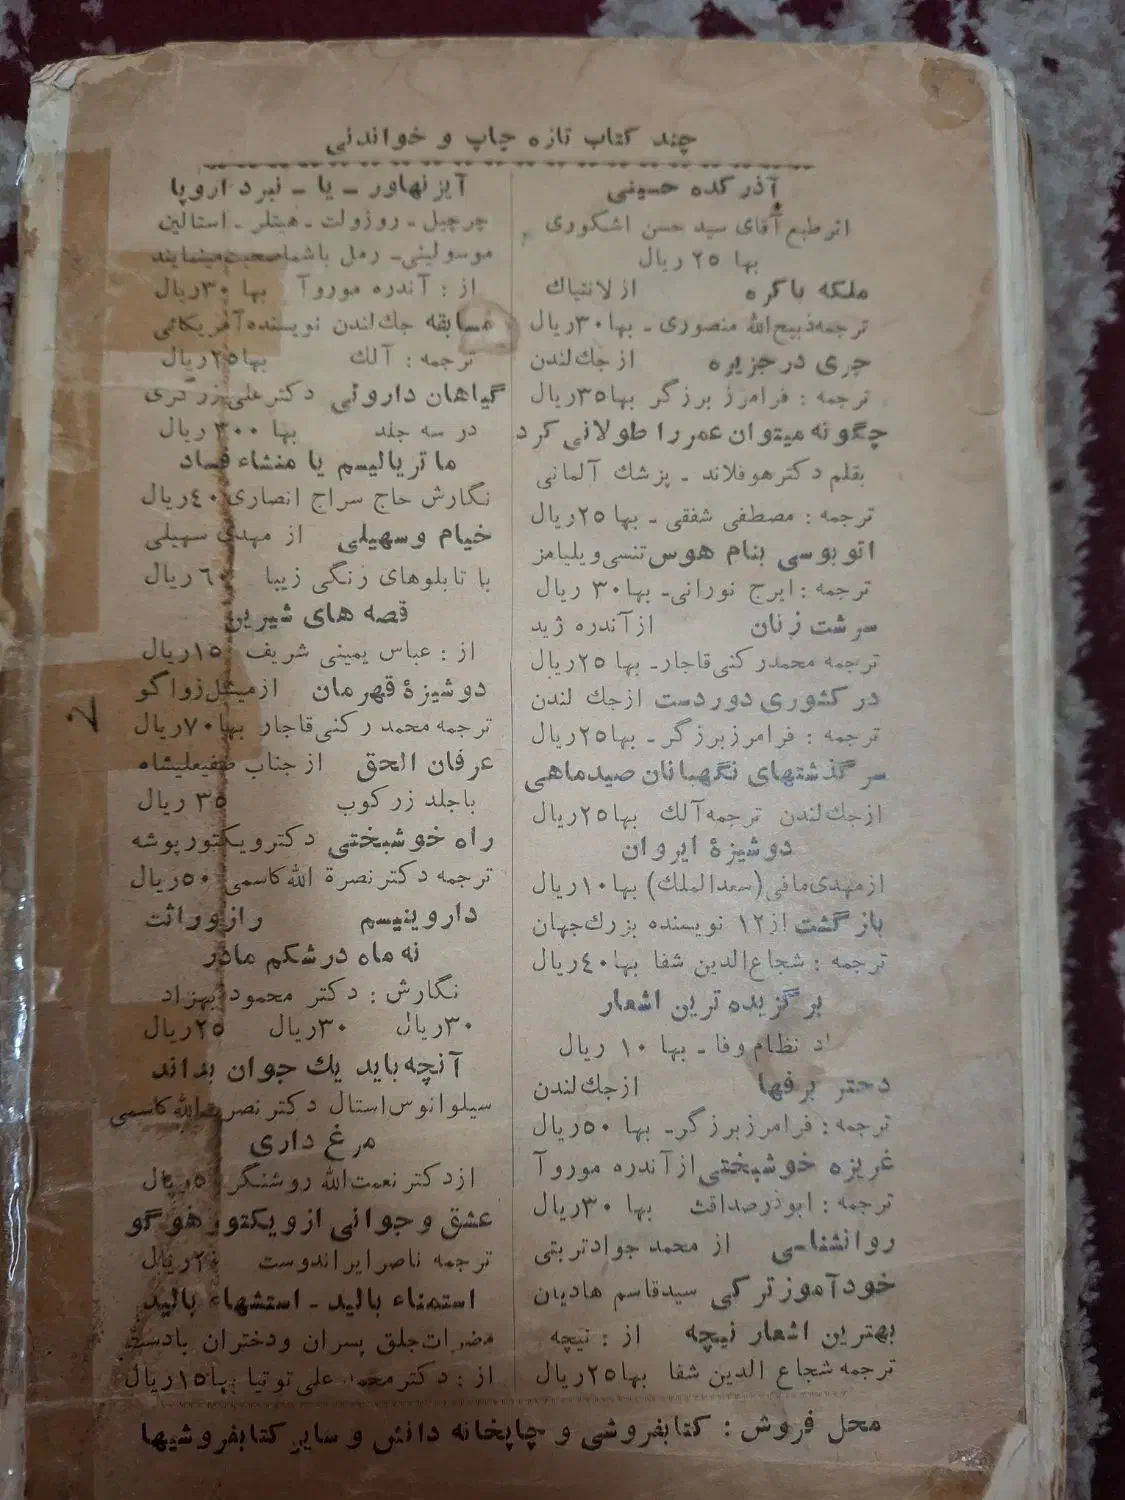 چند کتاب تازه چاپ و خواندنی
آذرکده حسینی
اثر طبع آقای سید حسن اشکوری
بها ۲۵ ریال
ملکه باکره از لانتپاك
ترجمه ذبیح‌الله منصوری ـ بها ۳۰ ریال
جری در جزیره از جك لندن
ترجمه : فرامرز برزگر بها ۳۵ ریال
چگونه میتوان عمر را طولانی کرد
بقلم دکتر هوفلاند ـ پزشك آلمانی
ترجمه : مصطفی شفقی ـ بها ۲۵ ریال
اتوبوسی بنام هوس تنسی ویلیامز
ترجمه : ایرج نورانی ـ بها ۳۰ ریال
سرشت زنان از آندره ژید
ترجمه محمد رکنی قاجار ـ بها ۲۵ ریال
در کشوری دوردست از جك لندن
ترجمه : فرامرز برزگر ـ بها ۲۵ ریال
سرگذشتهای نگهبانان صید ماهی
از جك لندن ترجمه آلك بها ۲۵ ریال
دوشیزهٔ ایروان
از مهدی مافی (سعدالملك) بها ۱۰ ریال
بازگشت از ۱۲ نویسنده بزرك جهان
ترجمه : شجاع‌الدین شفا بها ۴۰ ریال
برگزیده ترین اشعار
نظام وفا ـ بها ۱۰ ریال
دختر برفها از جك لندن
ترجمه : فرامرز برزگر ـ بها ۵۰ ریال
غریزه خوشبختی از آندره موروآ
ترجمه : ابوذر صداقت بها ۳۰ ریال
روانشناسی از محمد جواد تربتی
خودآموز ترکی سید قاسم هادیان
بهترین اشعار نیچه از : نیچه
ترجمه شجاع الدین شفا بها ۲۵ ریال
آیزنهاور ـ یا ـ نبرد اروپا
چرچیل ـ روزولت ـ هیتلر ـ استالین
موسولینی ـ رمل باشما صحبت مینمایند
از : آندره موروآ بها ۳۰ ریال
مسابقه جك لندن نویسنده آمریکائی
ترجمه : آلك بها ۲۵ ریال
گیاهان داروئی دکتر علی زرگری
در سه جلد بها ۳۰۰ ریال
ماتریالیسم یا منشاء فساد
نگارش حاج سراج انصاری ۴۰ ریال
خیام و سهیلی از مهدی سهیلی
با تابلوهای رنگی زیبا ۶۰ ریال
قصه های شیرین
از : عباس یمینی شریف ۱۵ ریال
دوشیزهٔ قهرمان از میشل زواگو
ترجمه محمد رکنی قاجار بها ۷۰ ریال
عرفان الحق از جناب صفیعلیشاه
با جلد زرکوب ۳۵ ریال
راه خوشبختی دکتر ویکتور پوشه
ترجمه دکتر نصرة الله کاسمی ۵۰ ریال
داروینیسم راز وراثت
نه ماه در شکم مادر
نگارش : دکتر محمود بهزاد
۳۰ ریال ۳۰ ریال ۲۵ ریال
آنچه باید یك جوان بداند
سیلوانوس استال دکتر نصرت‌الله کاسمی
مرغ داری
از دکتر نعمت‌الله روشنگر ریال
عشق و جوانی از ویکتور هوگو
ترجمه ناصر ایراندوست ۲۰ ریال
استمناء بالید ـ استشهاء بالید
مضرات جلق پسران و دختران بادست
از : دکتر محمد علی توتیا بها ۱۵ ریال
محل فروش : کتابفروشی و چاپخانه دانش و سایر کتابفروشیها